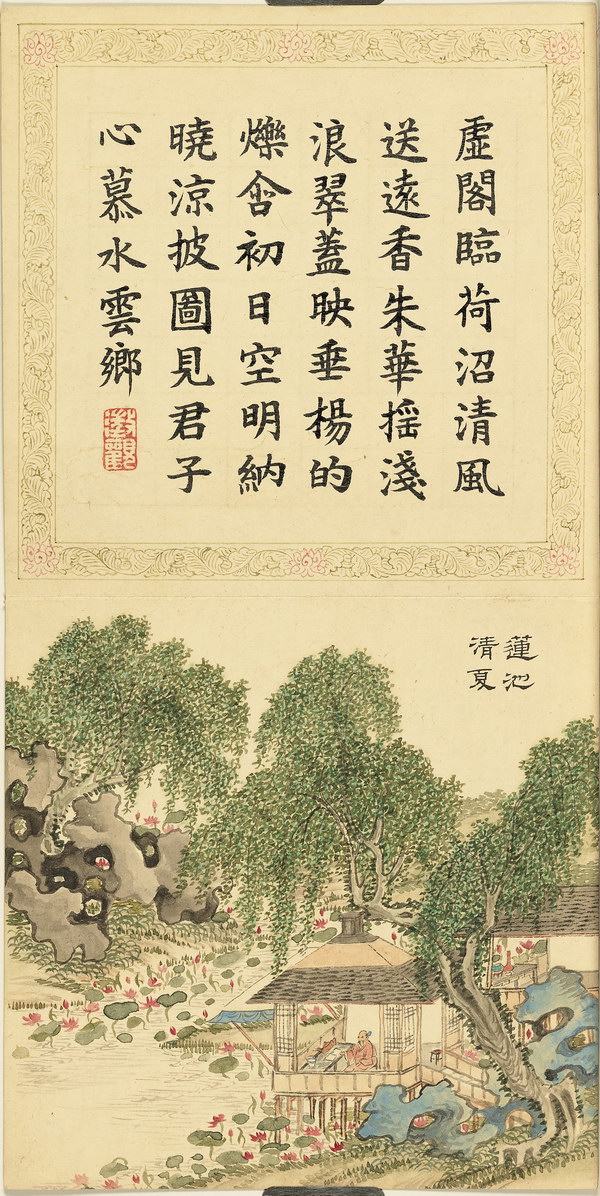 虛閣臨荷沼清風
送遠香朱華搖淺
浪翠蓋映垂楊的
爍含初日空明納
曉涼披圖見君子
心慕水雲鄉
蓮池
清夏